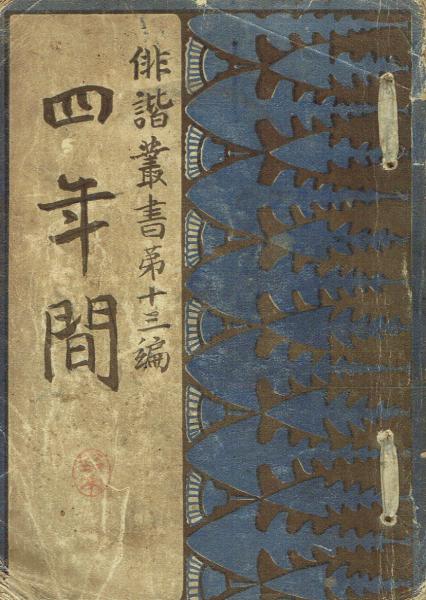 俳諧叢書第十三編
四年間